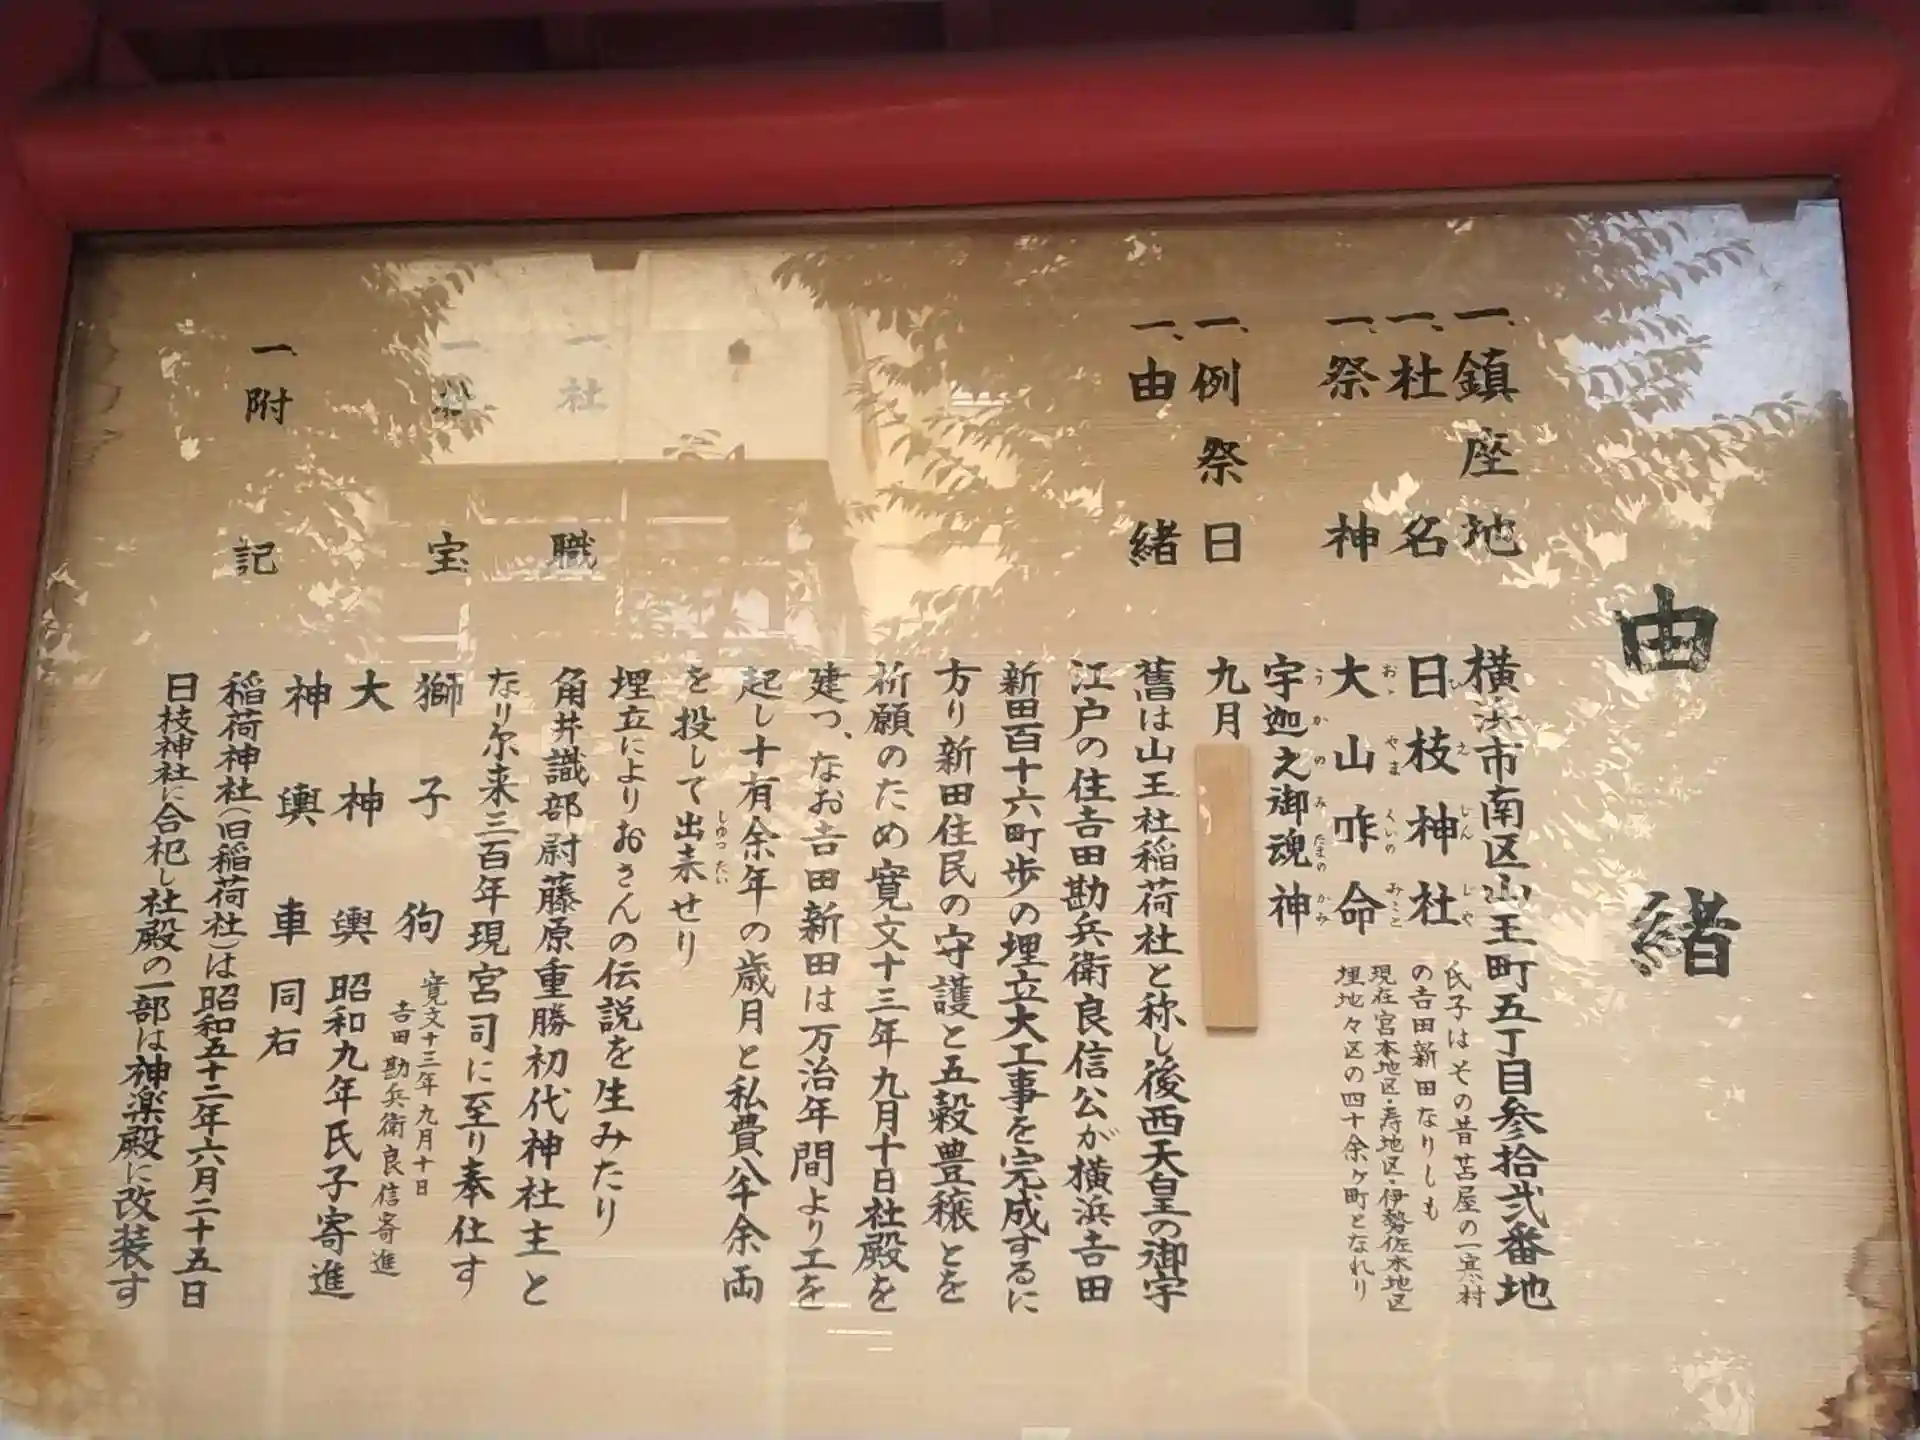 由緒
一、鎮座地 横浜市南区山王町五丁目参拾弐番地
一、社名 日枝神社
ひえじんじや
氏子はその昔苫屋の一寒村
の吉田新田なりしも
現在宮本地区・寿地区・伊勢佐木地区
埋地々区の四十余ヶ町となれり
一、祭神 大山咋命
おゝやまくいのみこと
宇迦之御魂神
うかのみたまのかみ
一、例祭日 九月
一、由緒 舊は山王社稲荷社と称し後西天皇の御宇
江戸の住吉田勘兵衛良信公が横浜吉田
新田百十六町歩の埋立大工事を完成するに
方り新田住民の守護と五穀豊穣とを
祈願のため寛文十三年九月十日社殿を
建つ、なお吉田新田は万治年間より工を
起し十有余年の歳月と私費八千余両
を投して出来せり
しゆつたい
埋立によりおさんの伝説を生みたり
一、社職 角井識部尉藤原重勝初代神社主と
なり尓来三百年現宮司に至り奉仕す
一、社宝 獅子狗 寛文十三年九月十日
吉田勘兵衛良信寄進
大神輿 昭和九年氏子寄進
神輿車 同右
一、附記 稲荷神社(旧稲荷社)は昭和五十二年六月二十五日
日枝神社に合祀し社殿の一部は神楽殿に改装す